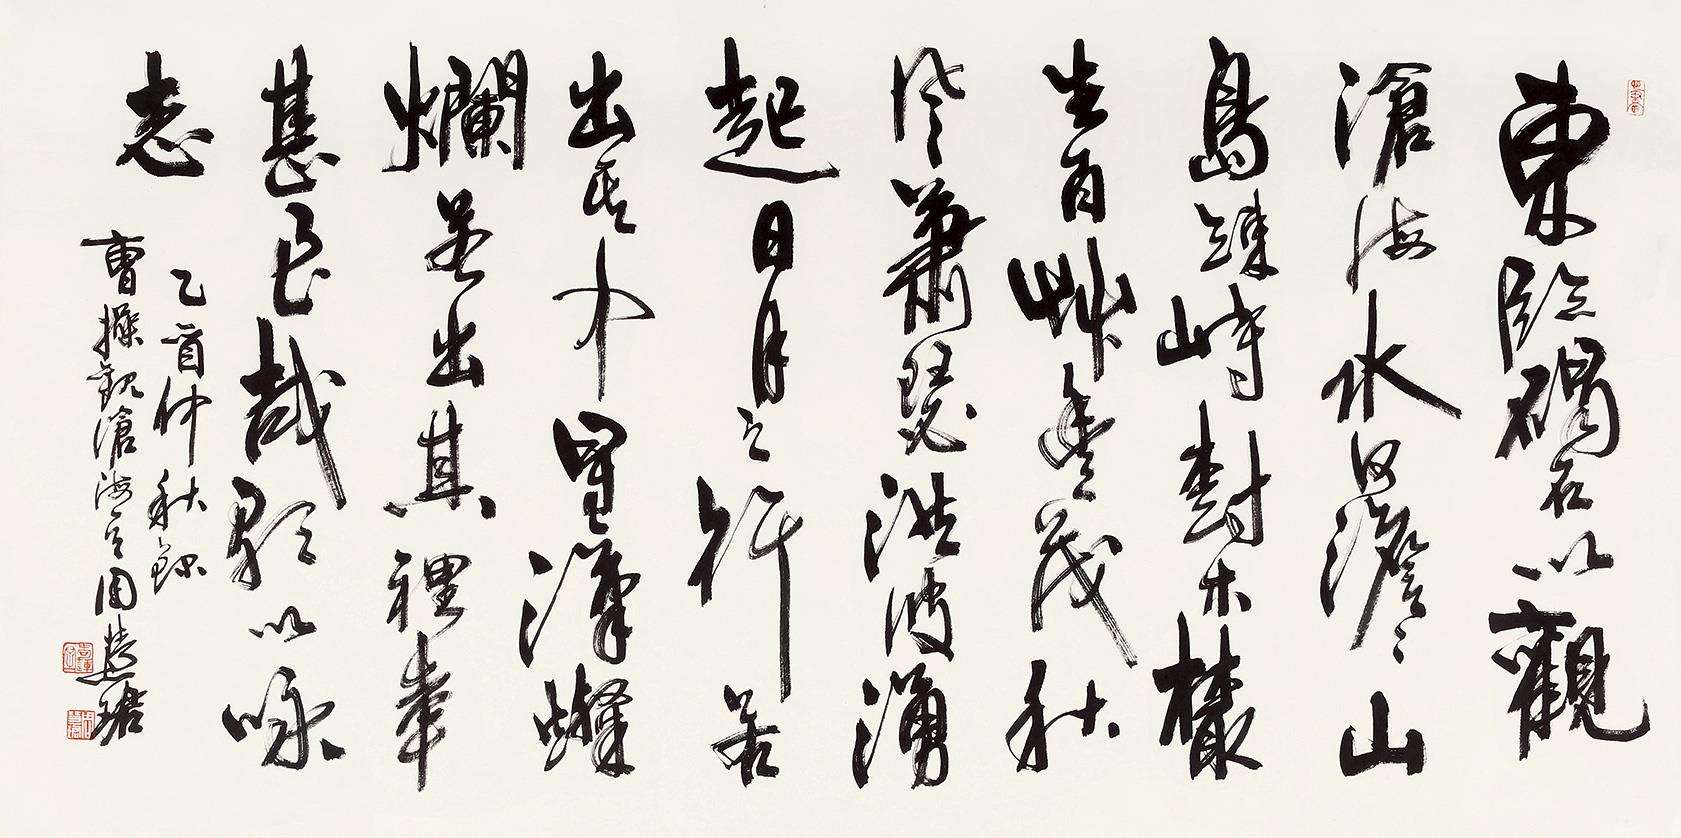 東臨碣石以觀
滄海水何澹〻山
島竦峙樹木欉
生百艸豐茂秋
風蕭瑟洪波湧
起日月之行若
出其中星漢燦
爛若出其裡幸
甚至哉歌以咏
志
乙酉仲秋錄
曹操觀滄海 周慧珺